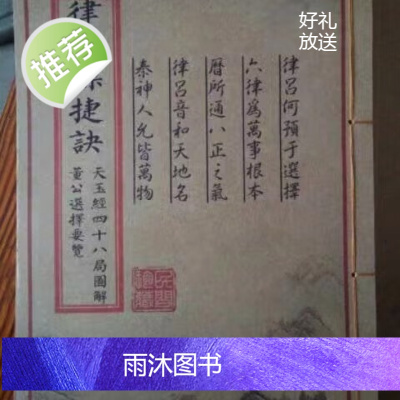 好礼
放送
推荐
律呂何預于選擇
六律為萬事根本
曆所通八正之氣
律呂音和天地名
泰神人允皆萬物
捷訣
天玉經四十八局圖解
董公選擇要覽
雨沐图书